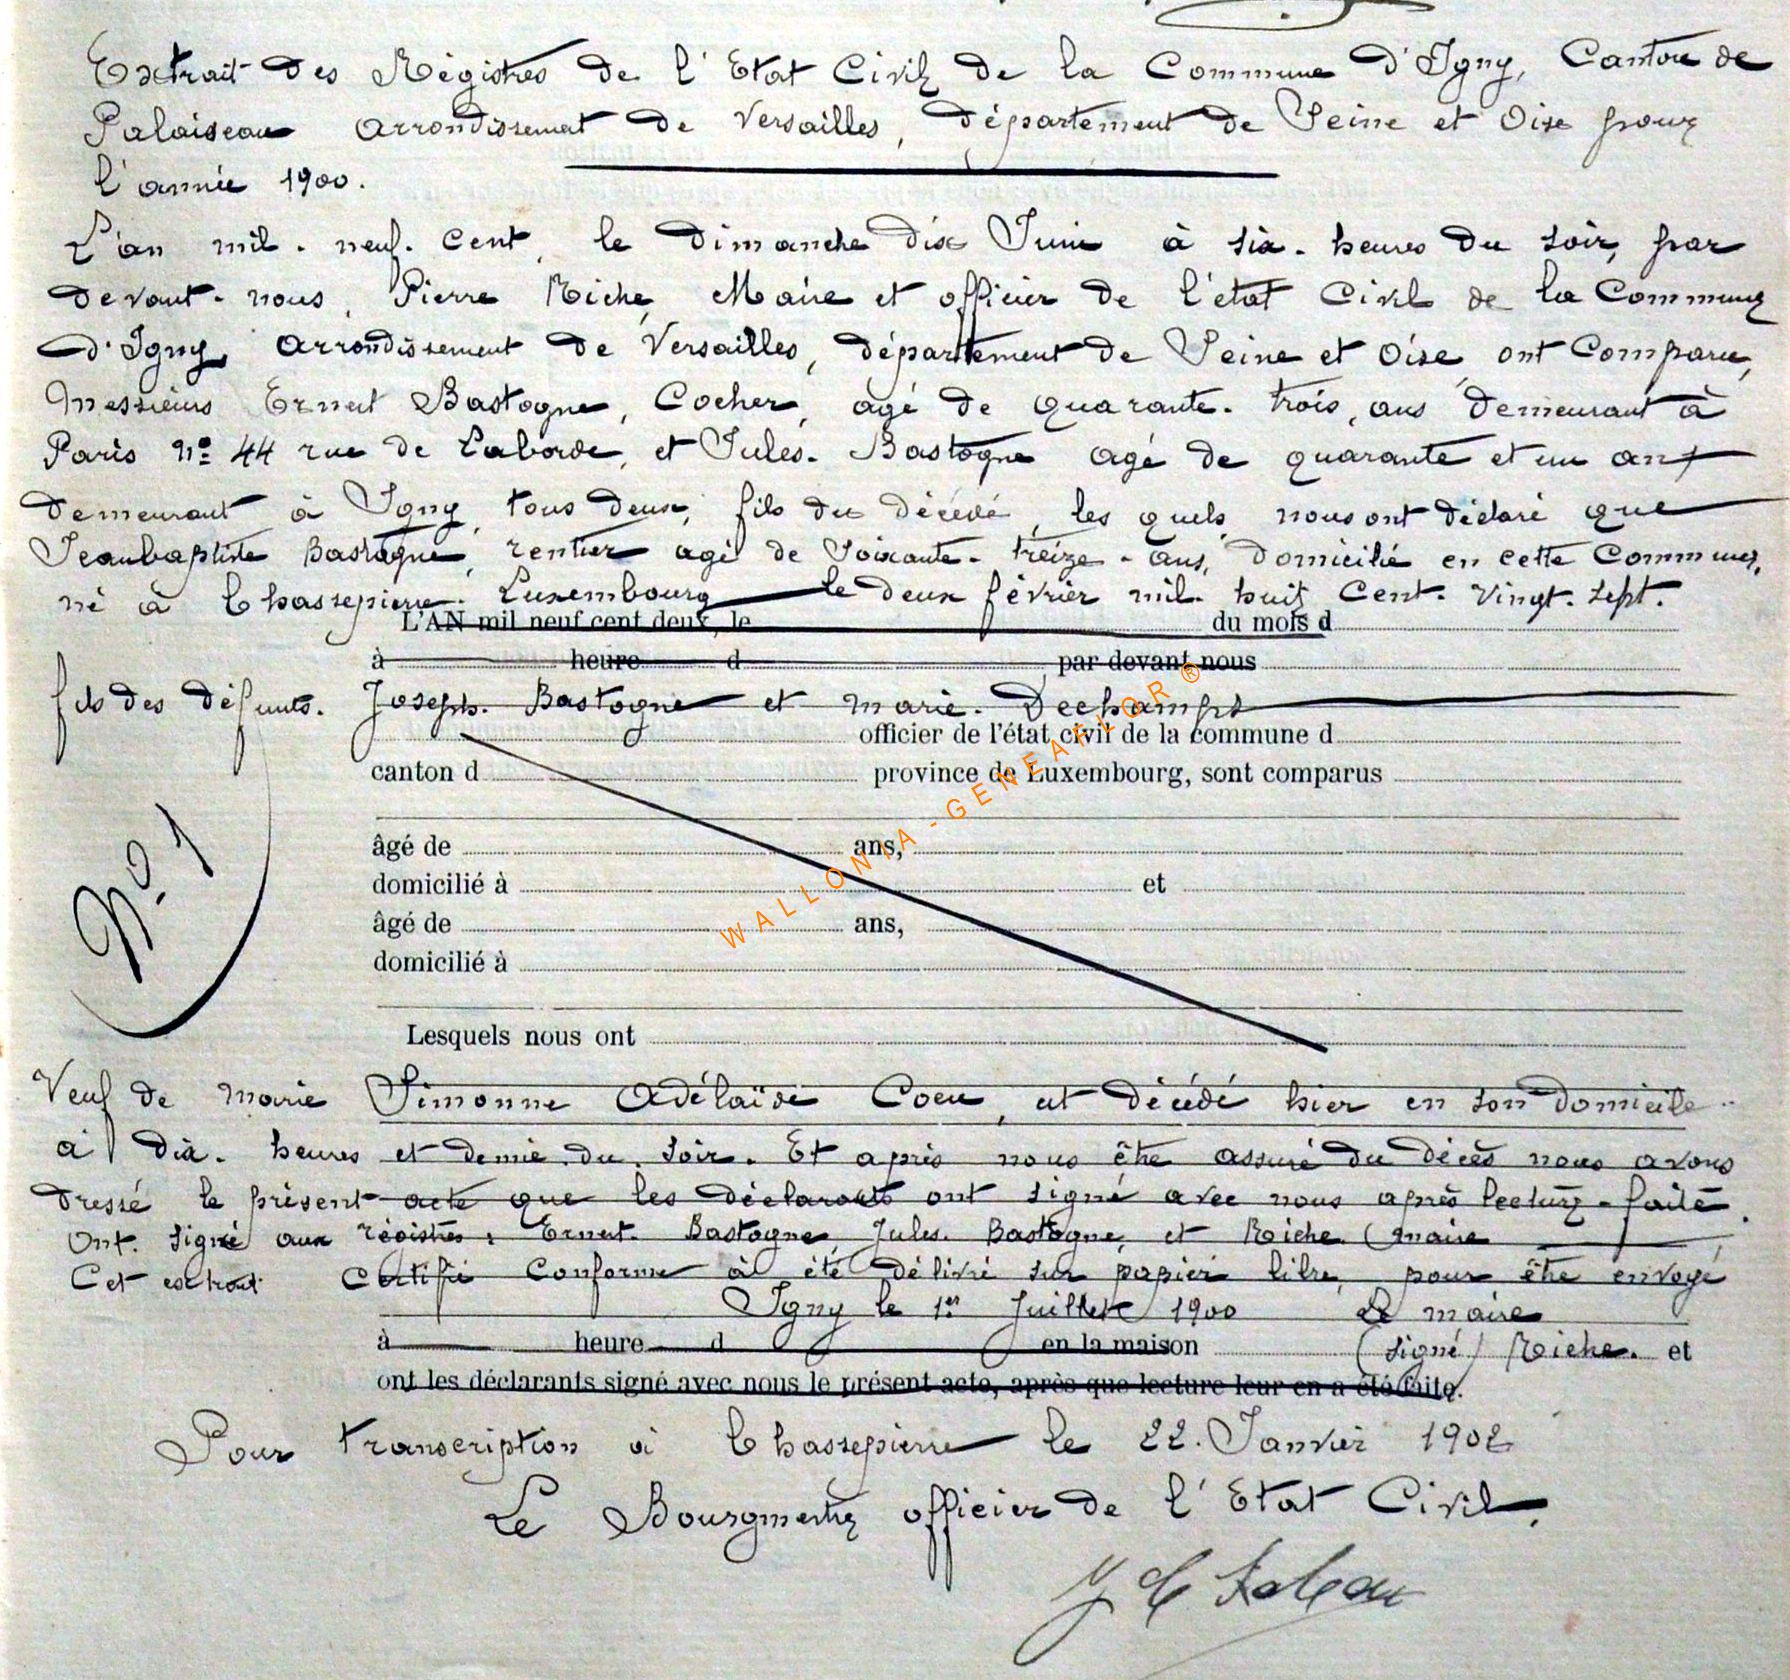 Extrait des Régistres de l'Etat Civil de la Commune d'Igny, Canton de
Palaiseau arrondissement de Versailles, département de Seine et Oise pour
l'année 1900.
L'an mil. neuf. cent, le dimanche dix Juin à six. heures du soir, par
devant. nous, Pierre Riche, Maire et officier de l'état Civil de la Commune
d'Igny, arrondissement de Versailles, département de Seine et Oise, ont Comparu,
Messieurs Ernest Bastogne, Cocher, agé de quarante. trois, ans demeurant à
Paris n° 44 rue de Laborde, et Jules. Bastogne agé de quarante et un ans
demeurant à Igny, tous deux, fils du décédé, les quels, nous ont déclaré que
Jeanbaptiste Bastogne, rentier agé de Soixante. treize - ans, domicilié en cette Commune,
né à Chassepierre. Luxembourg le deux février mil. huit Cent. Vingt. Sept.
L'AN mil neuf cent deux, le du mois d
à heure d par devant nous
fils des défunts. Joseph. Bastogne et marie. Dechamps
officier de l'état civil de la commune d
canton d province de Luxembourg, sont comparus
âgé de ans,
domicilié à et
âgé de ans,
domicilié à
N° 1
Lesquels nous ont
Veuf de marie Simonne Adélaïde Coeu, est décédé hier en son domicile
à dix. heures et demie du. soir. Et après nous être assuré du décès nous avons
dressé le présent acte que les déclarants ont signé avec nous après lecture - faite.
Ont. signé aux régistres: Ernest. Bastogne Jules. Bastogne, et Riche (maire
Cet extrait certifié Conforme à été délivré sur papier libre, pour être envoyé
Igny le 1er Juillet 1900 Le maire
à heure d en la maison (signé) Riche. et
ont les déclarants signé avec nous le présent acte, après que lecture leur en a été faite.
Pour transcription à Chassepierre le 22. Janvier 1902
Le Bourgmestre officier de l'Etat Civil.
WALLONIA-GENEAFLOR®